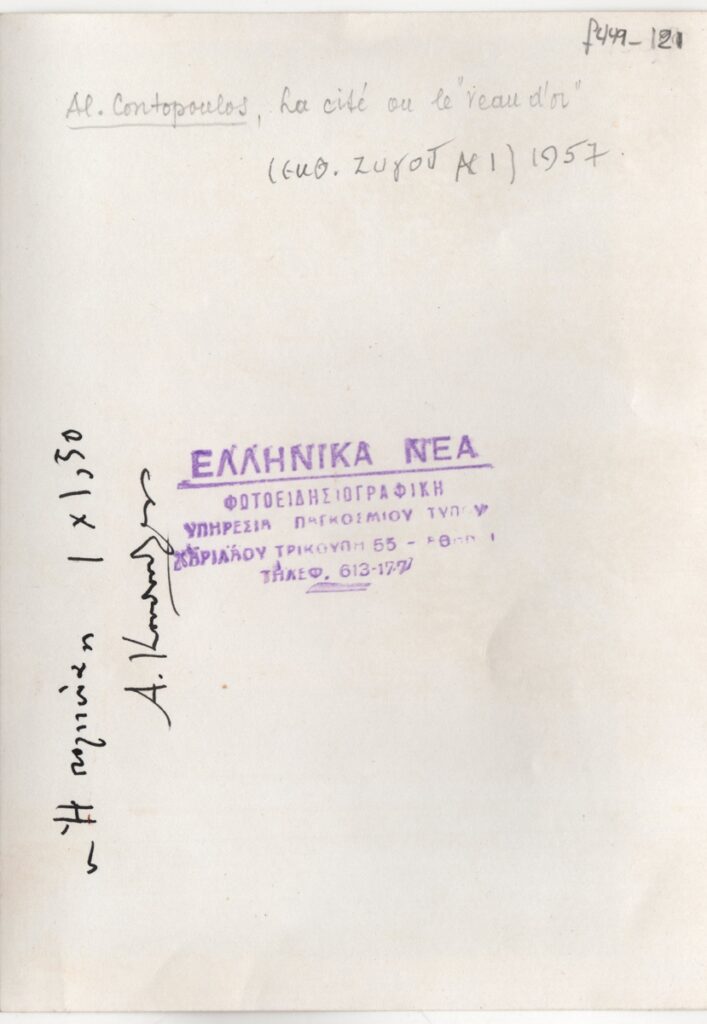 f449-121
Al. Contopoulos, La cité ou le "veau d'or"
(εκθ. ΖυγοΥ) 1957.
ΕΛΛΗΝΙΚΑ ΝΕΑ
ΦΩΤΟΕΙΔΗΣΙΟΓΡΑΦΙΚΗ
ΥΠΗΡΕΣΙΑ ΠΑΓΚΟΣΜΙΟΥ ΤΥΠΟΥ
ΧΑΡΙΛΑΟΥ ΤΡΙΚΟΥΠΗ 55 -
ΤΗΛΕΦ. 613-177
Ἡ 1 x 1,30
Α.